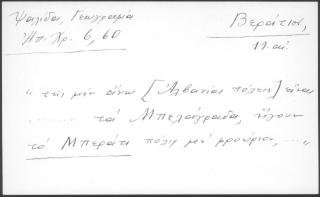 Ψαλίδα, Γεωγραφία
Ἠπ. Χρ. 6, 60
Βεράτιον,
19. αἰ.
"τῆς μὲν ἄνω [Ἀλβανίας πόλεις] εἶναι
........ τὰ Μπελάγραδα, ἤγουν
τὸ Μπεράτι πόλις μὲ φρούριον,...."